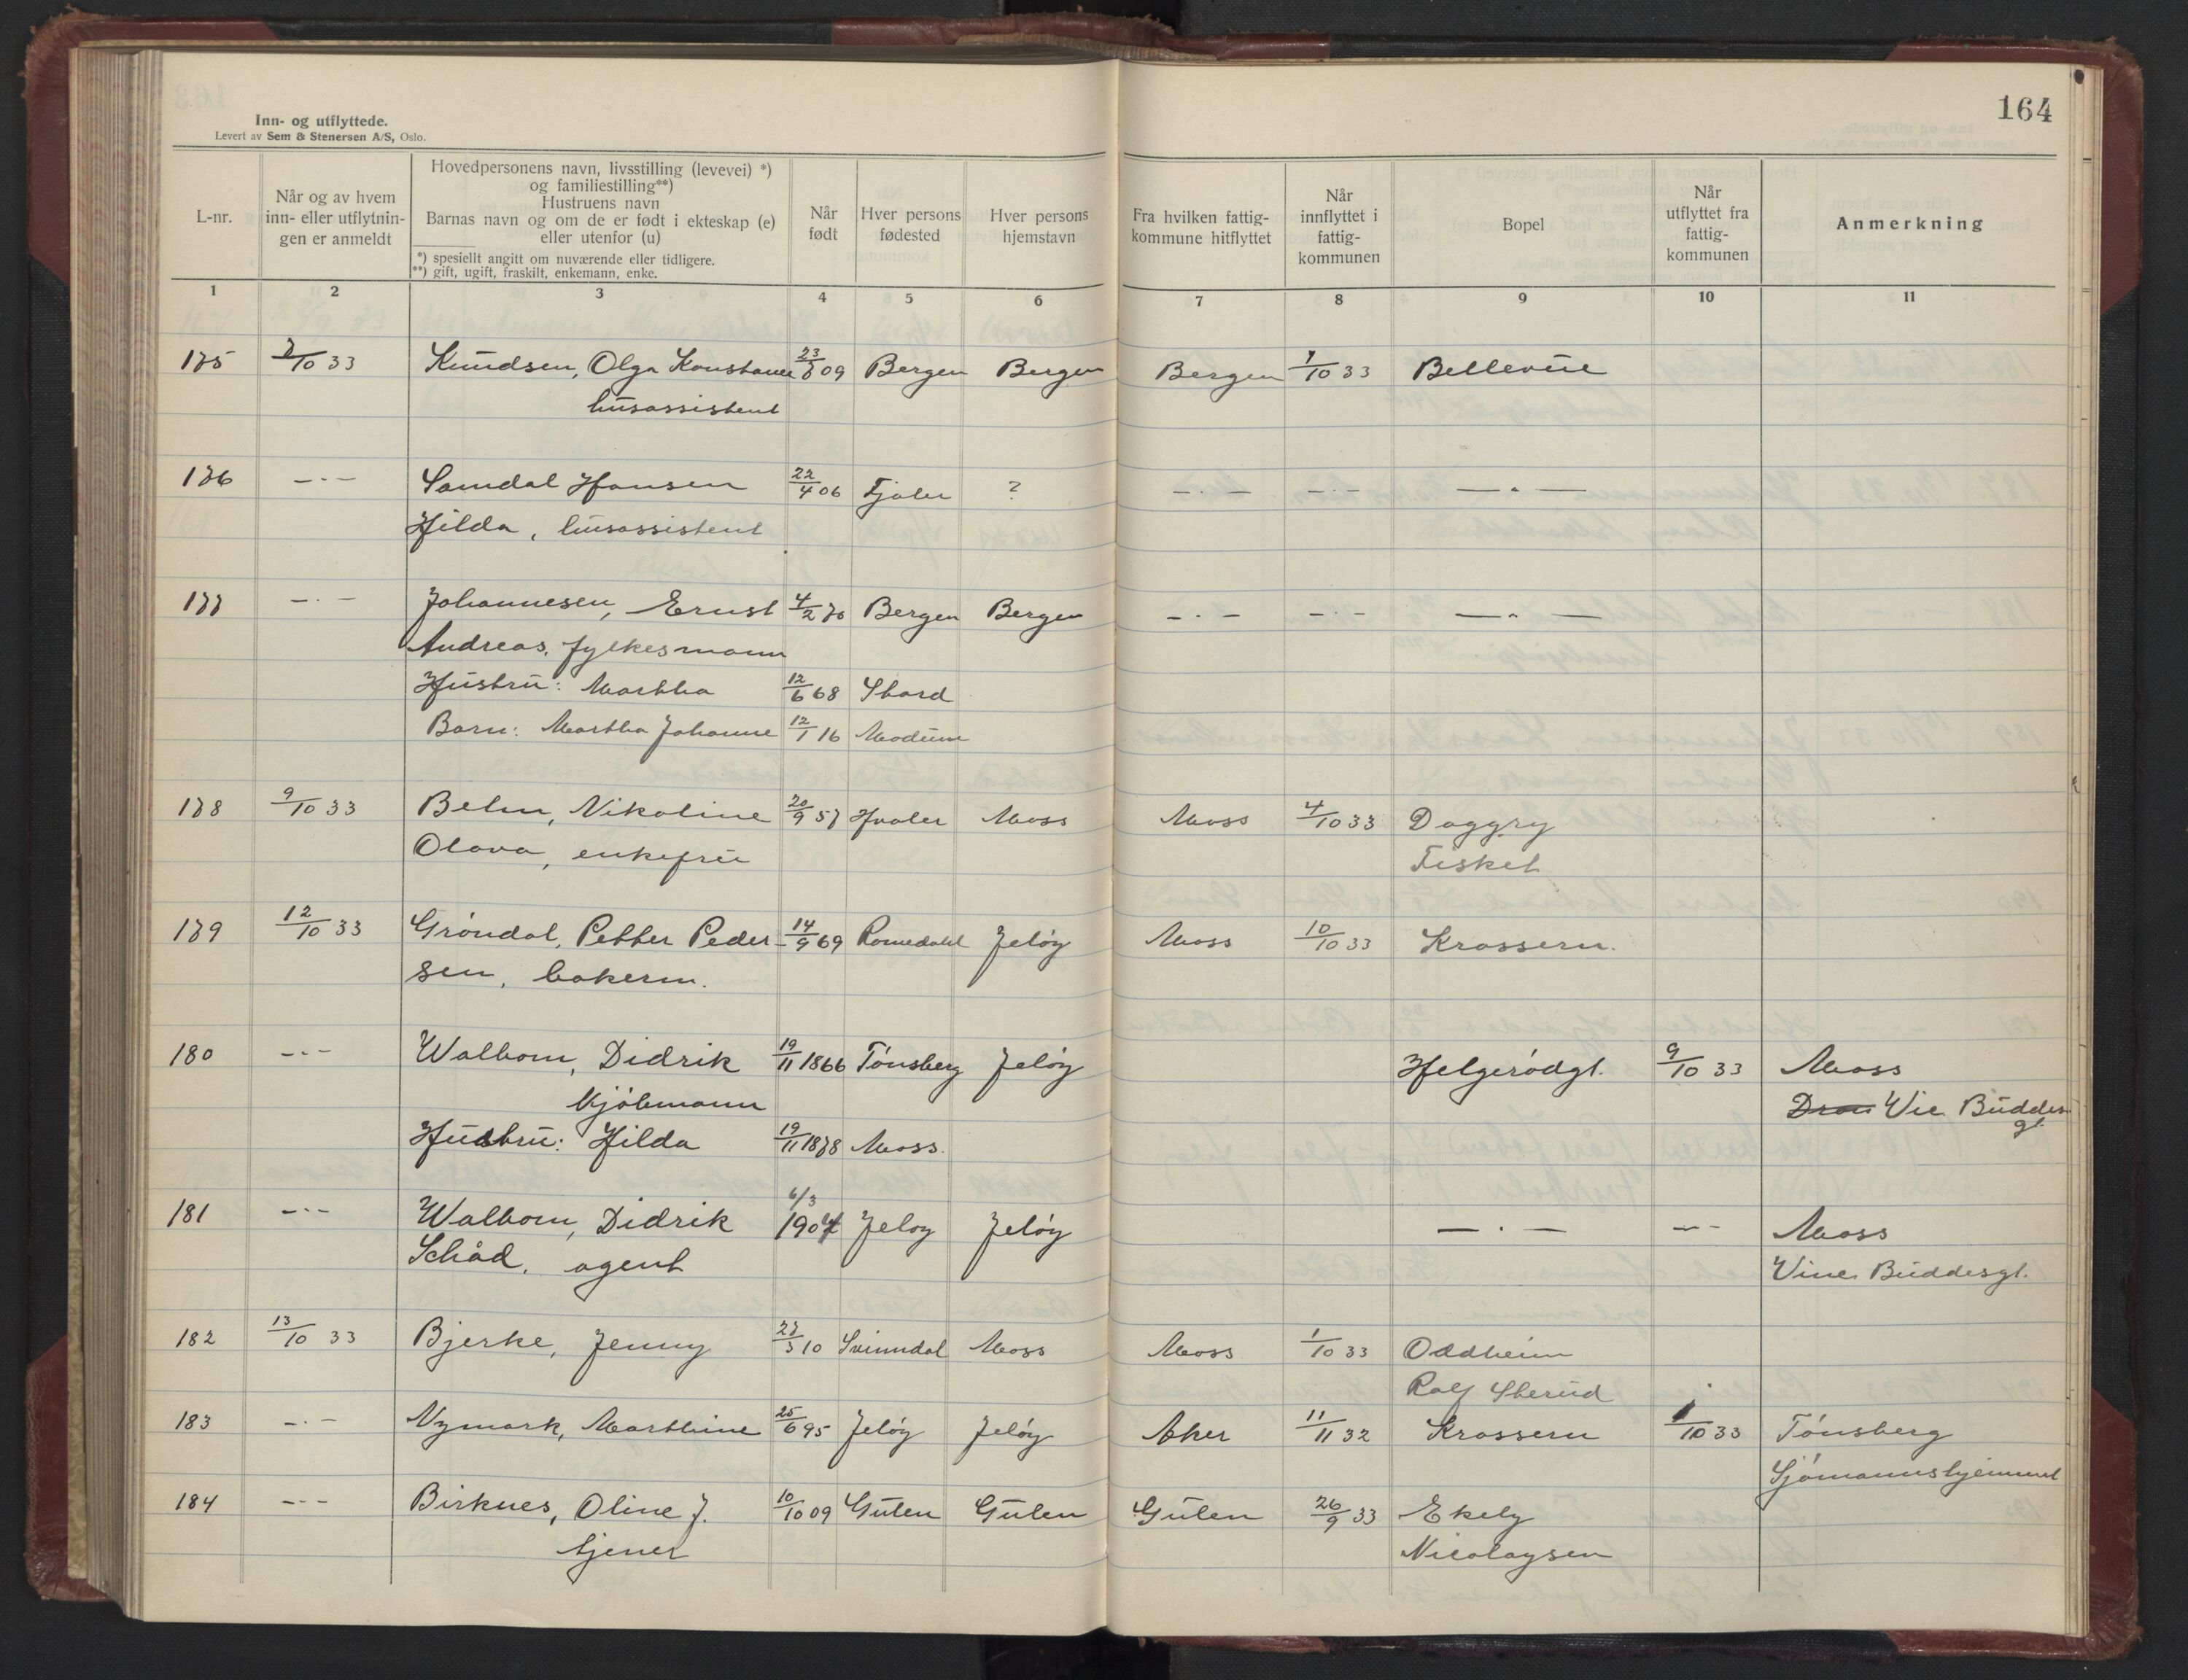 164
Inn- og utflyttede.
Levert av Sem & Stenersen A/S, Oslo.
L-nr.
Når og av hvem inn- eller utflytnin-gen er anmeldt
Hovedpersonens navn, livsstilling (levevei) *)
og familiestilling**)
Hustruens navn
Barnas navn og om de er født i ekteskap (e)
eller utenfor (u)
*) spesiellt angitt om nuværende eller tidligere.
**) gift, ugift, fraskilt, enkemann, enke.
Når født
Hver persons fødested
Hver persons hjemstavn
Fra hvilken fattig-kommune hitflyttet
Når innflyttet i fattig-kommunen
Bopel
Når utflyttet fra fattig-kommunen
Anmerkning
1 2 3 4 5 6 7 8 9 10 11
175 7/10 33 Knudsen, Olga Konstanse 09 Bergen Bergen Bergen 1/10 33 Bellevue
husassistent
176 —·— Samdal Hansen 22/4 06 Fjaler ? —·— —·— —"—
Hilda, husassistent
177 —·— Johannesen, Ernst 4/2 70 Bergen Bergen —·— —·— —"—
Andreas, fylkesmann
Hustru: Martha 12/6 68 Stord
Barn: Martha Johanne 12/1 16 Modum
178 9/10 33 Behn, Nikoline 20/9 57 Hvaler Moss Moss 4/10 33 Daggry
Olava, enkefru Fisket
179 12/10 33 Grøndal, Petter Peder- 14/9 69 Romedahl Jeløy Moss 10/10 33 Krossern.
sen, bakerm.
180 —·— Walbom, Didrik 19/11 1866 Tønsberg Jeløy Helgerødgt. 9/10 33 Moss
kjøbmann Vie Buddes
gt.
Hustru: Hilda 19/11 1878 Moss.
181 —·— Walbom, Didrik 6/3 1904 Jeløy Jeløy —·— —·— Moss
Schåd, agent Vine Buddesgt.
182 13/10 33 Bjerke, Jenny 27/3 10 Svinndal Moss Moss 1/10 33 Oddheim
Ralf Sterud
183 —·— Nymark, Marthine 25/6 95 Jeløy Jeløy Aker 11/11 32 Krossern 1/10 33 Tønsberg
Sjømannshjemmet
184 —·— Birknes, Oline J. 10/10 09 Gulen Gulen Gulen 26/9 33 Ekely
tjener Nicolaysen